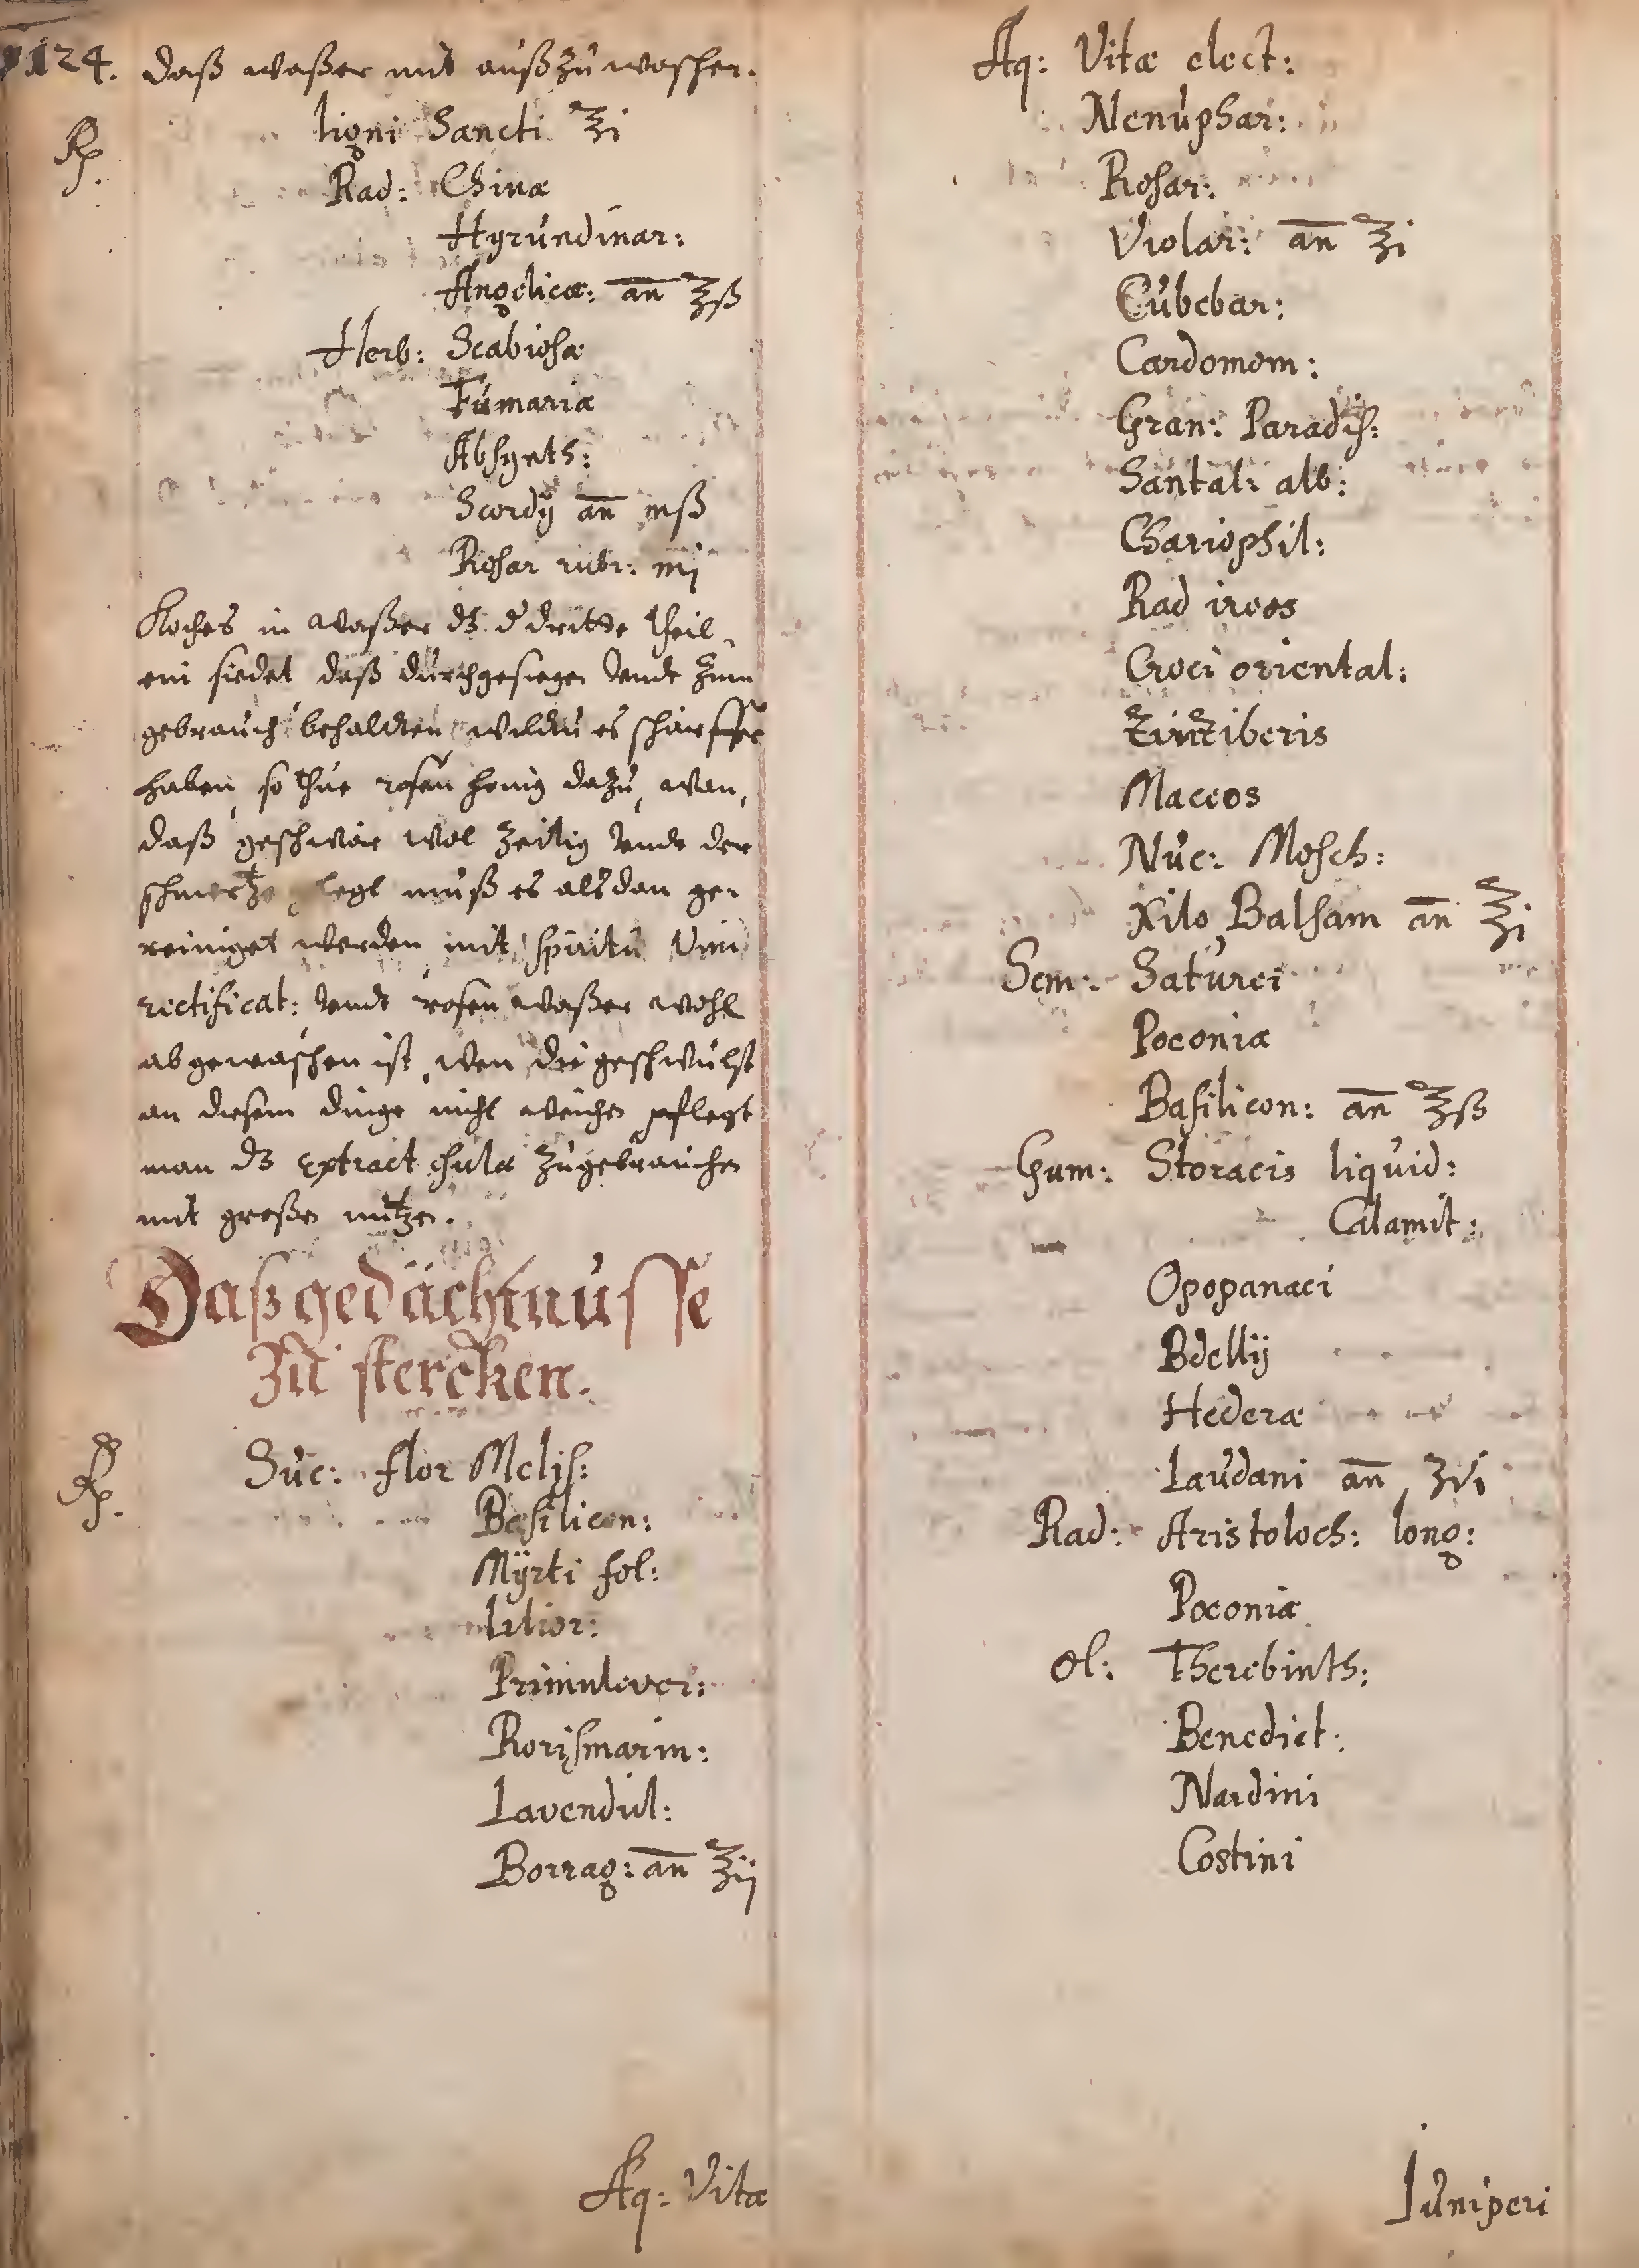 124. daß waßer mit außzuwaschen.
Rp.
ligni Sancti ℥i
Rad: Chinæ
Hyrundinar:
Angelicæ: an̄ ℥ß
Herb: Scabiosæ
Fumariæ
Absynth:
Scordÿ an̄ mß
Rosar rubr: mj
Koches in waßer dz d dritte theil
ein siedet daß durchgesiegen vnndt zum
gebrauch behaldten wildtu es schärffer
haben, so thue rosen honig dazu, wan,
daß geschwär wol zeitig vnndt der
schmertze legt muß es alsdan ge-
reiniget werden mit spiritu Vini
rectificat: vnndt rosen waßer wohl
abgewaschen ist, wen die geschwulst
an diesem dinge nicht weichen pflegt
man dz extract zugebrauchen
mit großen nutzen.
Daß gedächtnusse
Zu stercken.
Rp.
Suc: flor Melis:
Basilicon:
Mÿrti fol:
Lilior:
Primulever:
Rorismarin:
Lavendul:
Borrag: an̄ ℥ij
Aq: Vitæ
Aq: Vitæ elect:
Nenuphar:
Rosar:
Violar: an̄ ℥i
Cubebar:
Cardomom:
Gran: Paradis:
Santal: alb:
Chariophil:
Rad ireos
Croci oriental:
Zinziberis
Maceos
Nuc: Mosch:
Xilo Balsam an̄ ℥i
Sem: Saturei
Poeoniæ
Basilicon: an̄ ℥ß
Gum: Storacis liquid:
Calamit:
Opopanaci
Bdellij
Hederæ
Laudani an̄ ʒvi
Rad: Aristoloch: long:
Poeoniæ
Ol: Therebinth:
Benedict:
Nardini
Costini
Juniperi